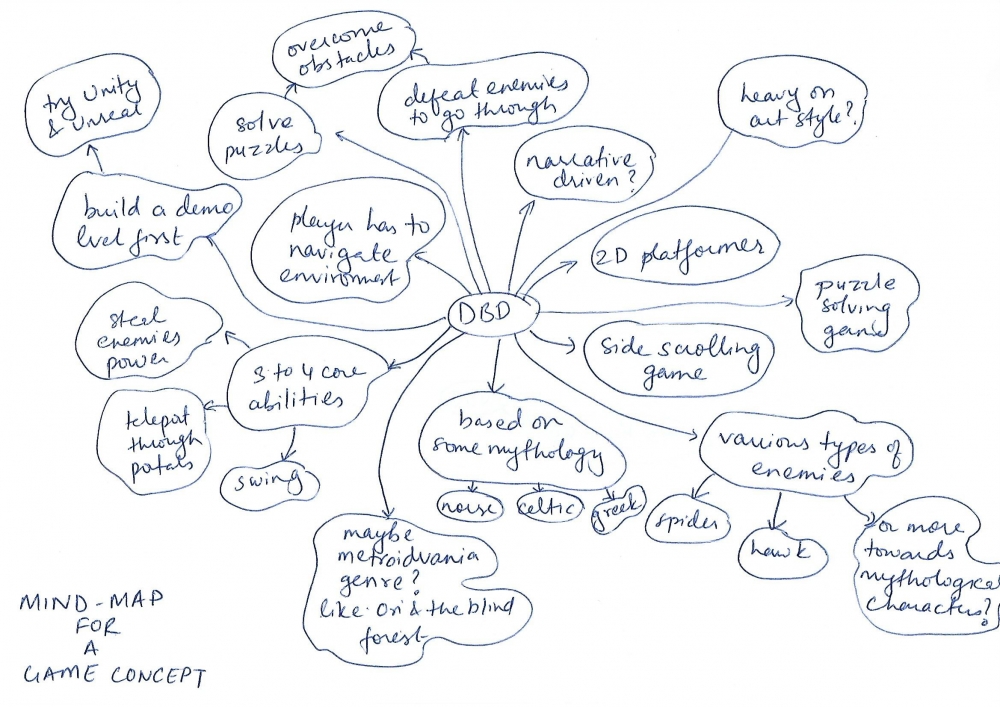 overcome
obstacles
try Unity
& Unreal
defeat enemies
to go through
heavy on
art style?
solve
puzzles
narrative
driven?
build a demo
level first
player has to
navigate
environment
2D platformer
DBD
puzzle
solving
game
steal
enemies
power
3 to 4 core
abilities
side scrolling
game
teleport
through
portals
swing
based on
some mythology
norse
celtic
greek
various types of
enemies
spider
hawk
or more
towards
mythological
characters?
maybe
metroidvania
genre?
like Ori & the blind
forest
MIND-MAP
FOR
A
GAME CONCEPT